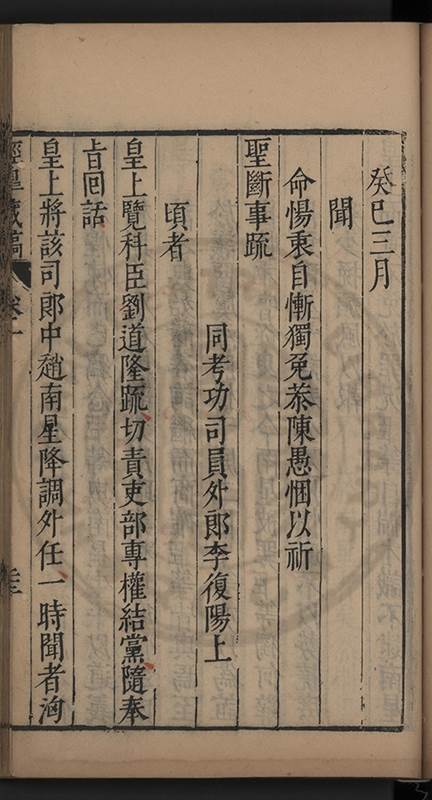 癸巳三月
聞
命惕衷自慚獨免恭陳愚悃以祈
聖斷事疏
同考功司員外郎李復陽上
頃者
皇上覽科臣劉道隆疏切責吏部專權結黨隨奉
旨回話
皇上將該司郎中趙南星降調外任一時聞者洶
涇皋藏稿
卷一